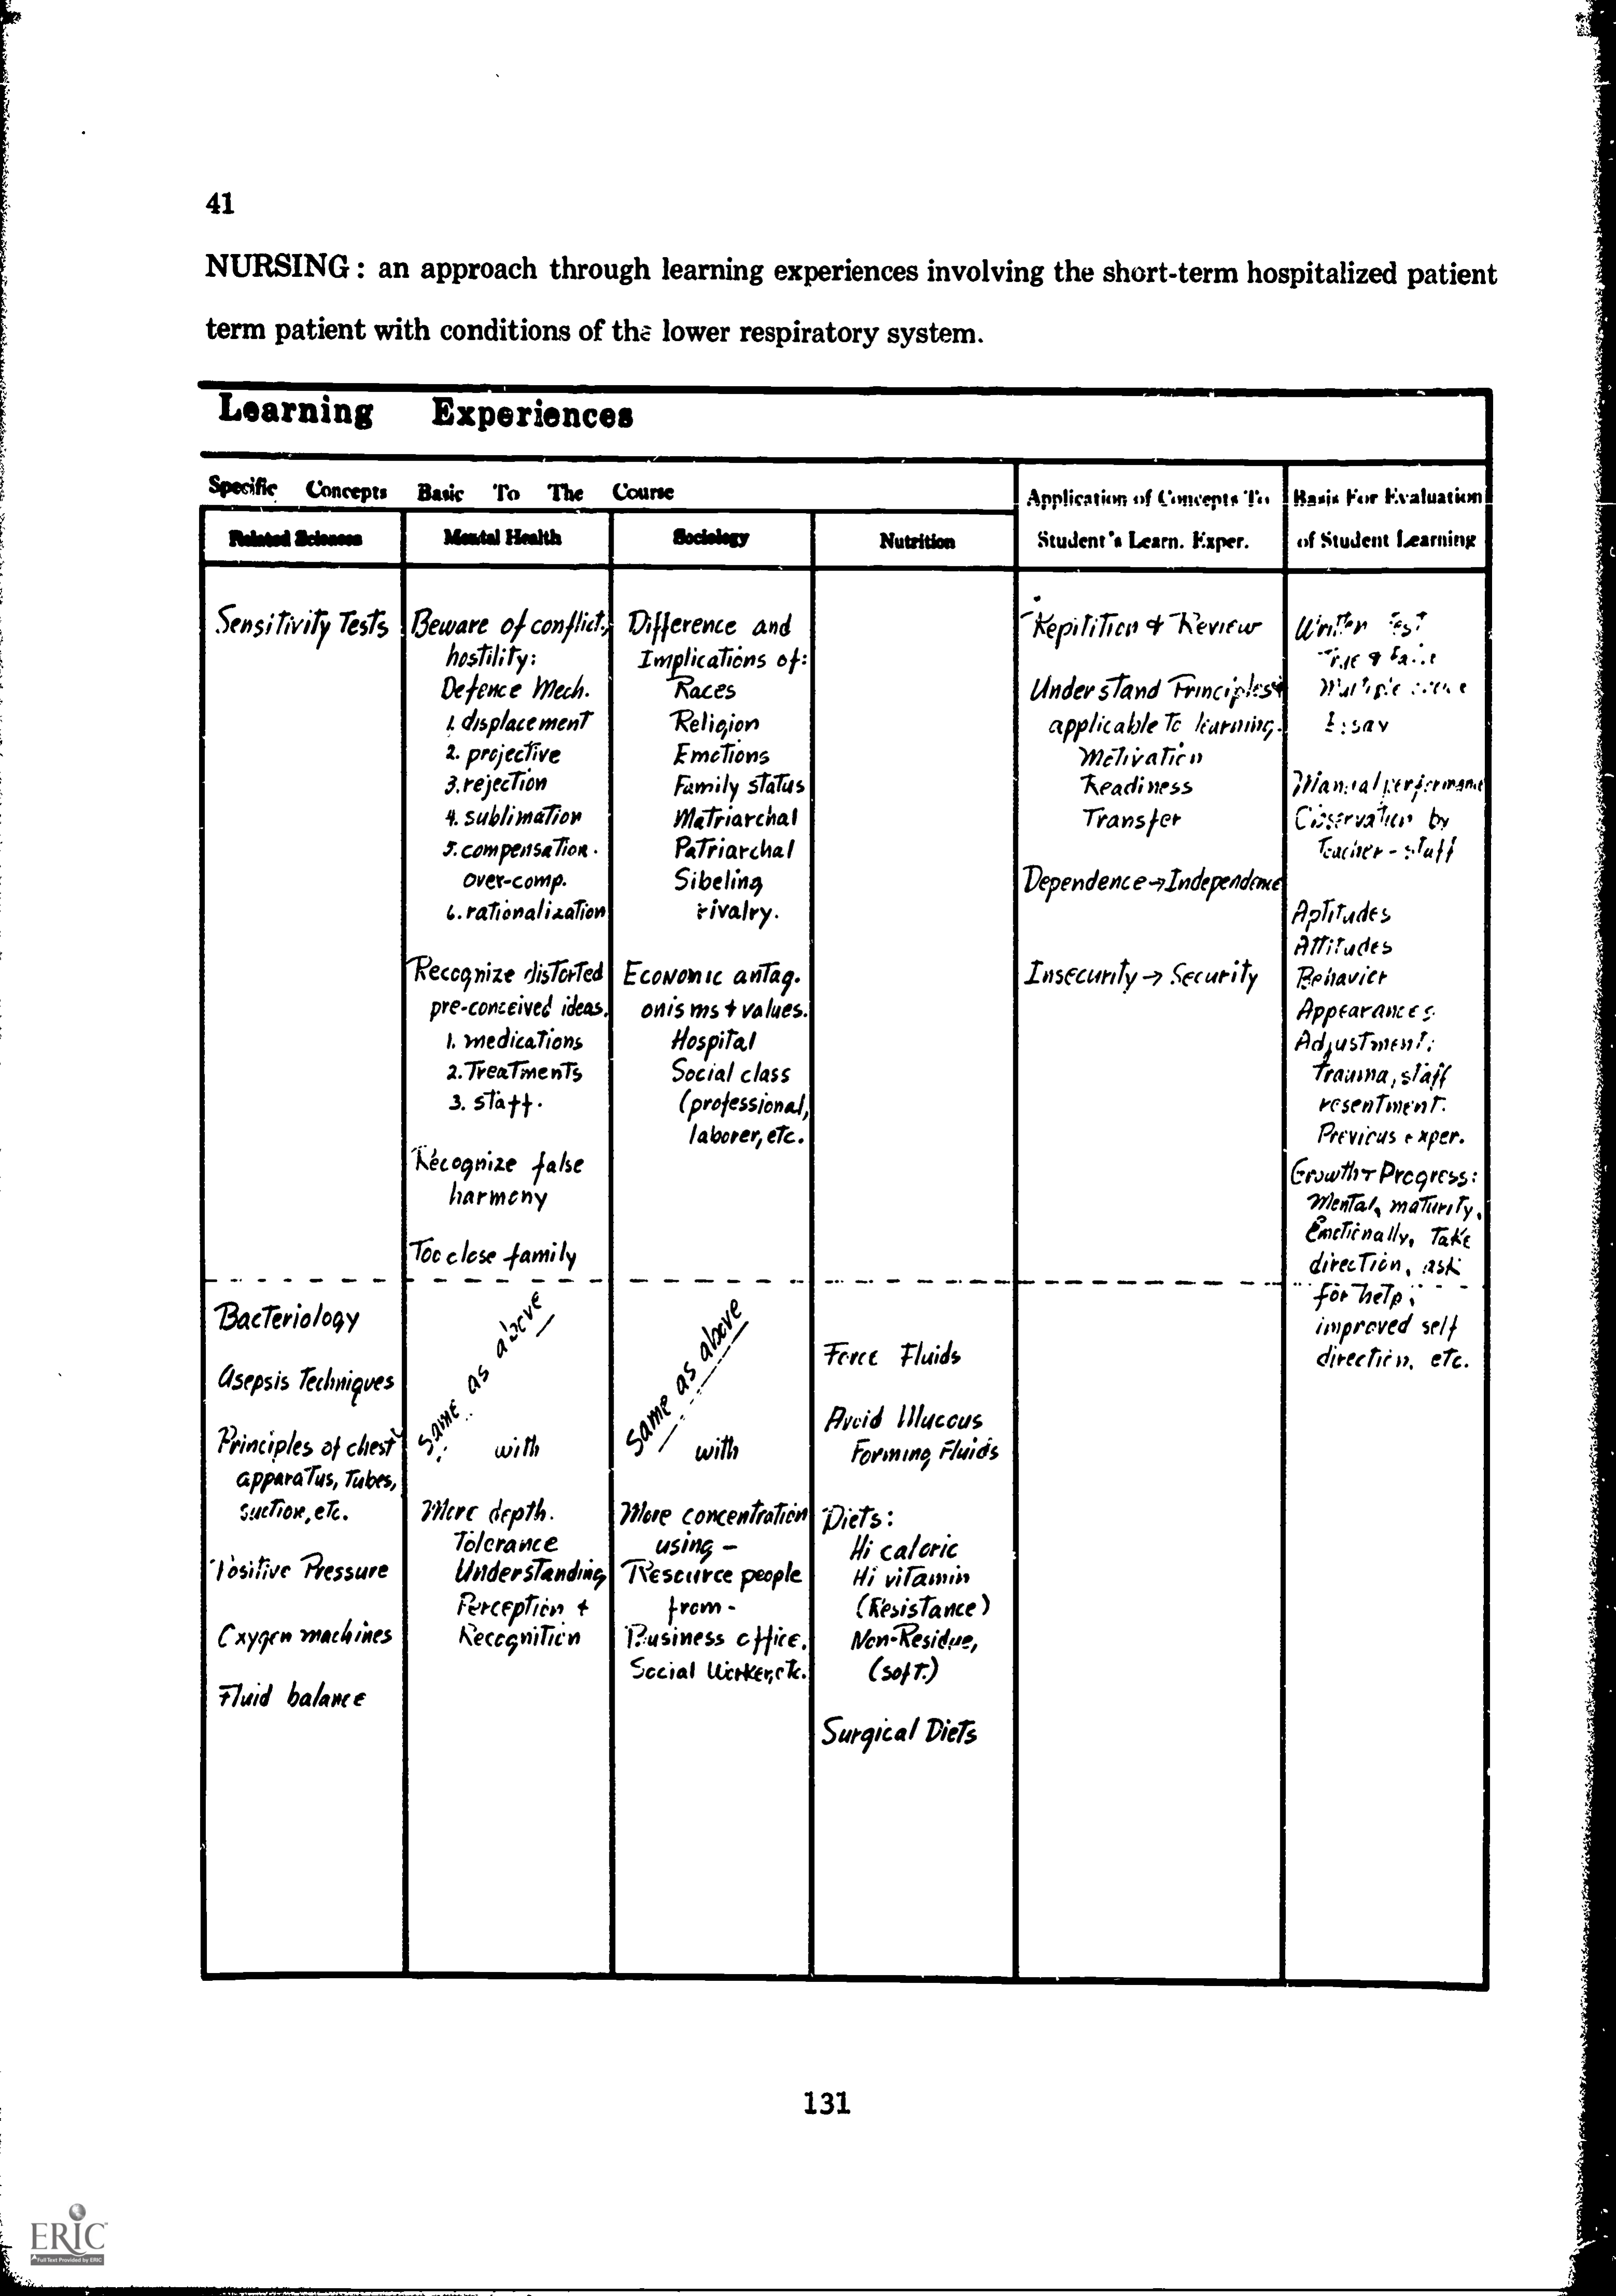 41
NURSING : an approach through learning experiences involving the short-term hospitalized patient
term patient with conditions of the lower respiratory system.
Learning Experiences
Specific Concepts Basic To The Course
Application of Concepts To
Student's Learn. Exper.
Basis For Evaluation
of Student Learning
Related Sciences
Mental Health
Sociology
Nutrition
Sensitivity Tests
Beware of conflict,
hostility:
Defence Mech.
1. displacement
2. projective
3. rejection
4. sublimation
5. compensation.
over-comp.
6. rationalization
Recognize distorted
pre-conceived ideas.
1. medications
2. Treatments
3. staff.
Recognize false
harmony
Too close family
Difference and
Implications of:
Races
Religion
Emotions
Family status
Matriarchal
Patriarchal
Sibeling
rivalry.
Economic antag.
onisms + values.
Hospital
Social class
(professional,
laborer, etc.
Repitition & Review
Understand Principles +
applicable to learning.
Motivation
Readiness
Transfer
Dependence → Independence
Insecurity → Security
Written Test
True & False
Multiple
Essay
Manual performance
Observation by
Teacher - staff
Aptitudes
Attitudes
Behavior
Appearances
Adjustment:
Trauma, staff
resentment.
Previous exper.
Growth + Progress:
Mental, maturity,
Emotionally, Take
direction, ask
for help,
improved self
direction, etc.
Bacteriology
Asepsis Techniques
Principles of chest
apparatus, Tubes,
suction, etc.
Positive Pressure
Oxygen machines
Fluid balance
Same as above
with
More depth.
Tolerance
Understanding
Perception +
Recognition
Same as above
with
More concentration
using -
Resource people
from -
Business office,
Social Worker, etc.
Force Fluids
Avoid Muccus
Forming Fluids
Diets:
Hi caloric
Hi vitamin
(Resistance)
Non-Residue,
(soft.)
Surgical Diets
131
ERIC
Full Text Provided by ERIC